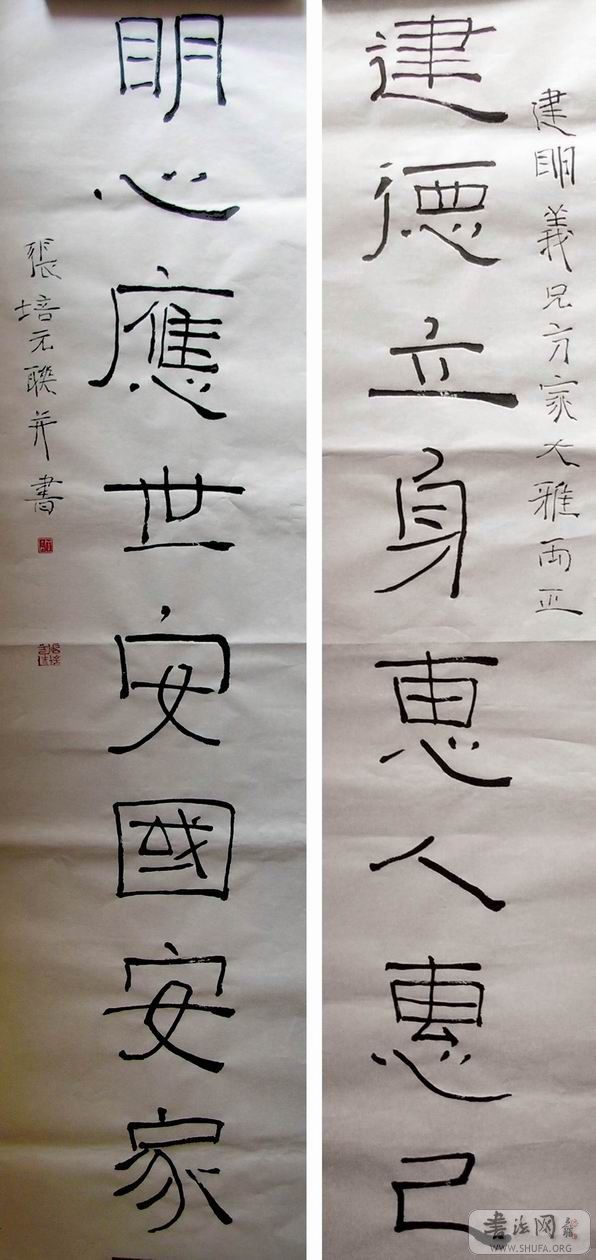 建明義兄方家大雅兩正
建德立身惠人惠己
明心應世安國安家
張培元聯并書
書法网
WWW.SHUFA.ORG